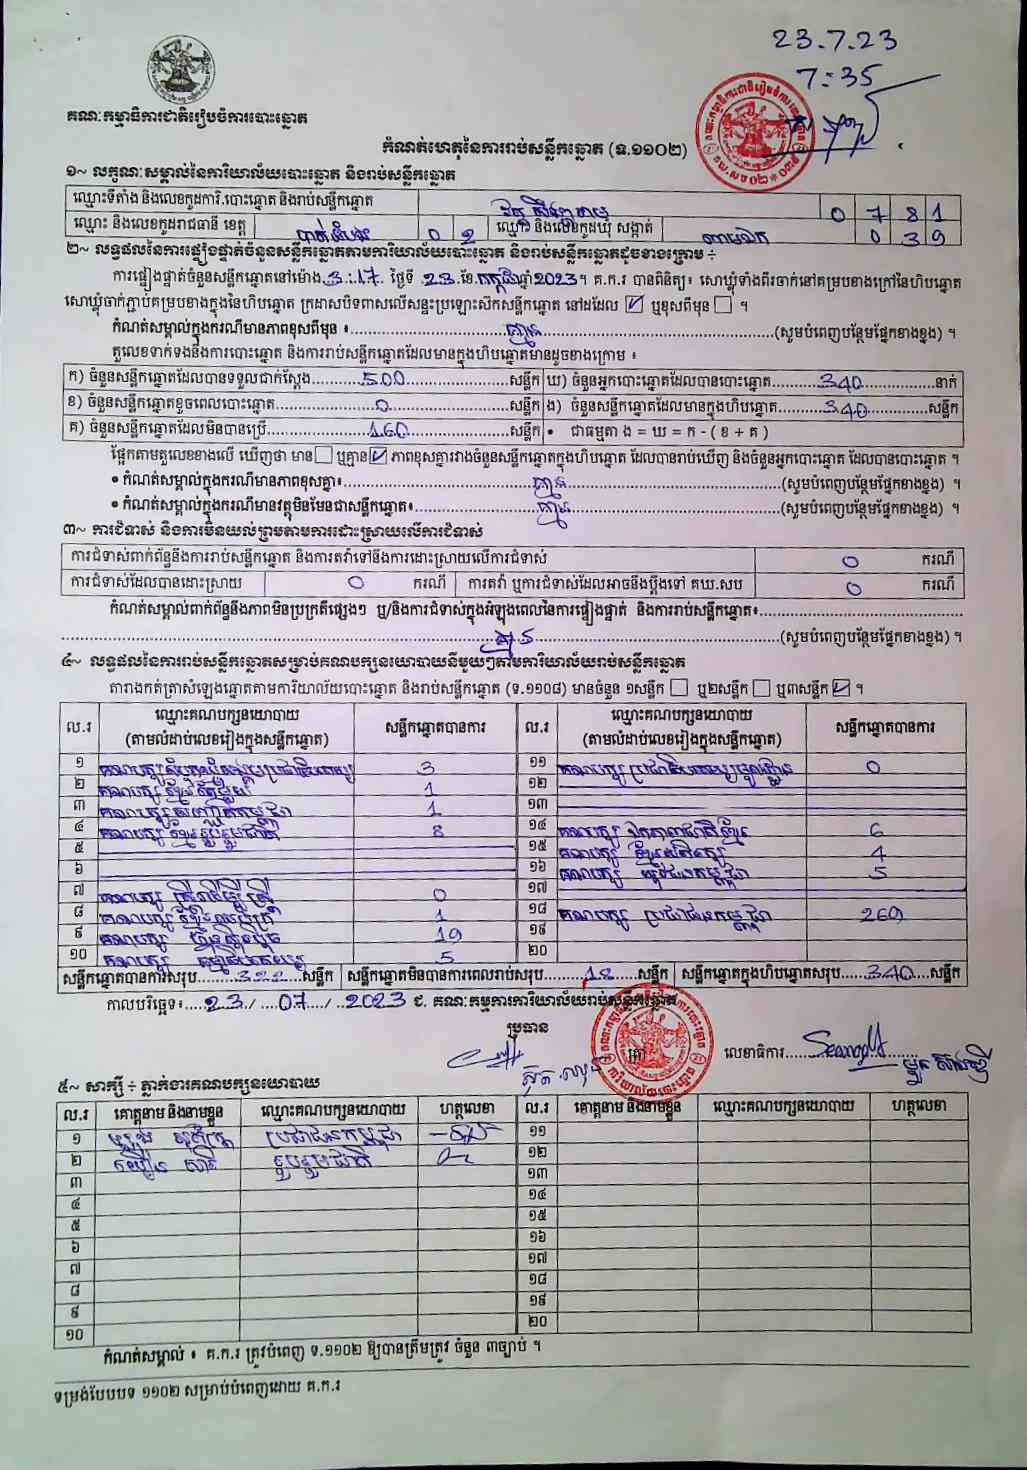 23.7.23
7:35
គណៈកម្មាធិការជាតិរៀបចំការបោះឆ្នោត
កំណត់ហេតុនៃការរាប់សន្លឹកឆ្នោត (ទ.១១០២)
១~ លក្ខណៈសម្គាល់នៃការិយាល័យបោះឆ្នោត និងរាប់សន្លឹកឆ្នោត
ឈ្មោះទីតាំង និងលេខកូដការិ.បោះឆ្នោត និងរាប់សន្លឹកឆ្នោត 0 7 8 1
ឈ្មោះ និងលេខកូដរាជធានី ខេត្ត បាត់ដំបង 0 2 ឈ្មោះ និងលេខកូដឃុំ សង្កាត់ 0 3 9
២~ លទ្ធផលនៃការផ្ទៀងផ្ទាត់ចំនួនសន្លឹកឆ្នោតតាមការិយាល័យបោះឆ្នោត និងរាប់សន្លឹកឆ្នោតដូចខាងក្រោម ÷
ការផ្ទៀងផ្ទាត់ចំនួនសន្លឹកឆ្នោតនៅម៉ោង 3:17 ថ្ងៃទី 23 ខែ កក្កដា ឆ្នាំ2023។ គ.ក.រ បានពិនិត្យ៖ សោឃ្លុំទាំងពីរចាក់នៅគម្របខាងក្រៅនៃហិបឆ្នោត
សោឃ្លុំចាក់ភ្ជាប់គម្របខាងក្នុងនៃហិបឆ្នោត ក្រដាសបិទពាសលើសន្ទះប្រឡោះសឹកសន្លឹកឆ្នោត នៅដដែល ☑ ឬខុសពីមុន ☐ ។
កំណត់សម្គាល់ក្នុងករណីមានភាពខុសពីមុន ៖ គ្មាន (សូមបំពេញបន្ថែមផ្នែកខាងខ្នង) ។
តួលេខទាក់ទងនឹងការបោះឆ្នោត និងការរាប់សន្លឹកឆ្នោតដែលមានក្នុងហិបឆ្នោតមានដូចខាងក្រោម ៖
ក) ចំនួនសន្លឹកឆ្នោតដែលបានទទួលជាក់ស្តែង 500 សន្លឹក ឃ) ចំនួនអ្នកបោះឆ្នោតដែលបានបោះឆ្នោត 340 នាក់
ខ) ចំនួនសន្លឹកឆ្នោតខូចពេលបោះឆ្នោត 0 សន្លឹក ង) ចំនួនសន្លឹកឆ្នោតដែលមានក្នុងហិបឆ្នោត 340 សន្លឹក
គ) ចំនួនសន្លឹកឆ្នោតដែលមិនបានប្រើ 160 សន្លឹក • ជាធម្មតា ង = ឃ = ក - ( ខ + គ )
ផ្អែកតាមតួលេខខាងលើ ឃើញថា មាន ☐ ឬគ្មាន ☑ ភាពខុសគ្នារវាងចំនួនសន្លឹកឆ្នោតក្នុងហិបឆ្នោត ដែលបានរាប់ឃើញ និងចំនួនអ្នកបោះឆ្នោត ដែលបានបោះឆ្នោត ។
• កំណត់សម្គាល់ក្នុងករណីមានភាពខុសគ្នា៖ គ្មាន (សូមបំពេញបន្ថែមផ្នែកខាងខ្នង) ។
• កំណត់សម្គាល់ក្នុងករណីមានវត្ថុមិនមែនជាសន្លឹកឆ្នោត៖ គ្មាន (សូមបំពេញបន្ថែមផ្នែកខាងខ្នង) ។
៣~ ការជំទាស់ និងការមិនយល់ព្រមតាមការដោះស្រាយលើការជំទាស់
ការជំទាស់ពាក់ព័ន្ធនឹងការរាប់សន្លឹកឆ្នោត និងការតវ៉ាទៅនឹងការដោះស្រាយលើការជំទាស់ 0 ករណី
ការជំទាស់ដែលបានដោះស្រាយ 0 ករណី ការតវ៉ា ឬការជំទាស់ដែលអាចនឹងប្តឹងទៅ គឃ.សប 0 ករណី
កំណត់សម្គាល់ពាក់ព័ន្ធនឹងភាពមិនប្រក្រតីផ្សេងៗ ឬ/និងការជំទាស់ក្នុងអំឡុងពេលនៃការផ្ទៀងផ្ទាត់ និងការរាប់សន្លឹកឆ្នោត៖
គ្មាន (សូមបំពេញបន្ថែមផ្នែកខាងខ្នង) ។
៤~ លទ្ធផលនៃការរាប់សន្លឹកឆ្នោតសម្រាប់គណបក្សនយោបាយនីមួយៗតាមការិយាល័យរាប់សន្លឹកឆ្នោត
តារាងកត់ត្រាសំឡេងឆ្នោតតាមការិយាល័យបោះឆ្នោត និងរាប់សន្លឹកឆ្នោត (ទ.១១០៨) មានចំនួន ១សន្លឹក ☐ ឬ២សន្លឹក ☐ ឬ៣សន្លឹក ☑ ។
ល.រ ឈ្មោះគណបក្សនយោបាយ (តាមលំដាប់លេខរៀងក្នុងសន្លឹកឆ្នោត) សន្លឹកឆ្នោតបានការ ល.រ ឈ្មោះគណបក្សនយោបាយ (តាមលំដាប់លេខរៀងក្នុងសន្លឹកឆ្នោត) សន្លឹកឆ្នោតបានការ
១ គណបក្ស 3 ១១ គណបក្ស ប្រជាធិបតេយ្យមូលដ្ឋាន 0
២ គណបក្ស 1 ១២
៣ គណបក្ស 1 ១៣
៤ គណបក្ស ខ្មែររួបរួមជាតិ 8 ១៤ គណបក្ស ឯកភាពជាតិខ្មែរ 6
៥ ១៥ គណបក្ស 4
៦ ១៦ គណបក្ស 5
៧ គណបក្ស ស្ត្រីដើម្បីស្ត្រី 0 ១៧
៨ គណបក្ស 1 ១៨ គណបក្ស ប្រជាជនកម្ពុជា 269
៩ គណបក្ស ហ៊្វុនស៊ិនប៉ិច 19 ១៩
១០ គណបក្ស 5 ២០
សន្លឹកឆ្នោតបានការសរុប 322 សន្លឹក សន្លឹកឆ្នោតមិនបានការពេលរាប់សរុប 18 សន្លឹក សន្លឹកឆ្នោតក្នុងហិបឆ្នោតសរុប 340 សន្លឹក
កាលបរិច្ឆេទ៖ 23 / 07 / 2023 ជ. គណៈកម្មការការិយាល័យរាប់សន្លឹកឆ្នោត
ប្រធាន
លេខាធិការ
៥~ សាក្សី ÷ ភ្នាក់ងារគណបក្សនយោបាយ
ល.រ គោត្តនាម និងនាមខ្លួន ឈ្មោះគណបក្សនយោបាយ ហត្ថលេខា ល.រ គោត្តនាម និងនាមខ្លួន ឈ្មោះគណបក្សនយោបាយ ហត្ថលេខា
១ ប្រជាជនកម្ពុជា ១១
២ រួបរួមជាតិ ១២
៣ ១៣
៤ ១៤
៥ ១៥
៦ ១៦
៧ ១៧
៨ ១៨
៩ ១៩
១០ ២០
កំណត់សម្គាល់ ៖ គ.ក.រ ត្រូវបំពេញ ទ.១១០២ ឱ្យបានត្រឹមត្រូវ ចំនួន ៣ច្បាប់ ។
ទម្រង់បែបបទ ១១០២ សម្រាប់បំពេញដោយ គ.ក.រ